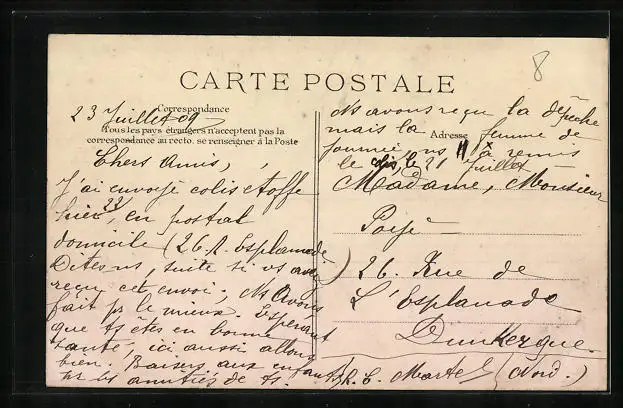 8
CARTE POSTALE
Correspondance
23 Juillet 09
Tous les pays étrangers n'acceptent pas la
correspondance au recto. se renseigner à la Poste
Chers Amis,
J'ai envoyé colis étoffe
hier 22, en postal
domicile (26. R. Esplanade)
Dites ns, suite si vs avez
reçu cet envoi; Ns avons
fait pr le mieux. Espérant
que ts êtes en bonne
santé, ici aussi allons
bien. Baisers aux enfants
les amitiés de ts.
R. C. Martel
Ns avons reçu la dépêche
mais la femme de
Adresse
journée ns l'a remis
le 21 Juillet
Madame, Monsieur
26. Rue de
L'Esplanade
Dunkerque.
(Nord.)